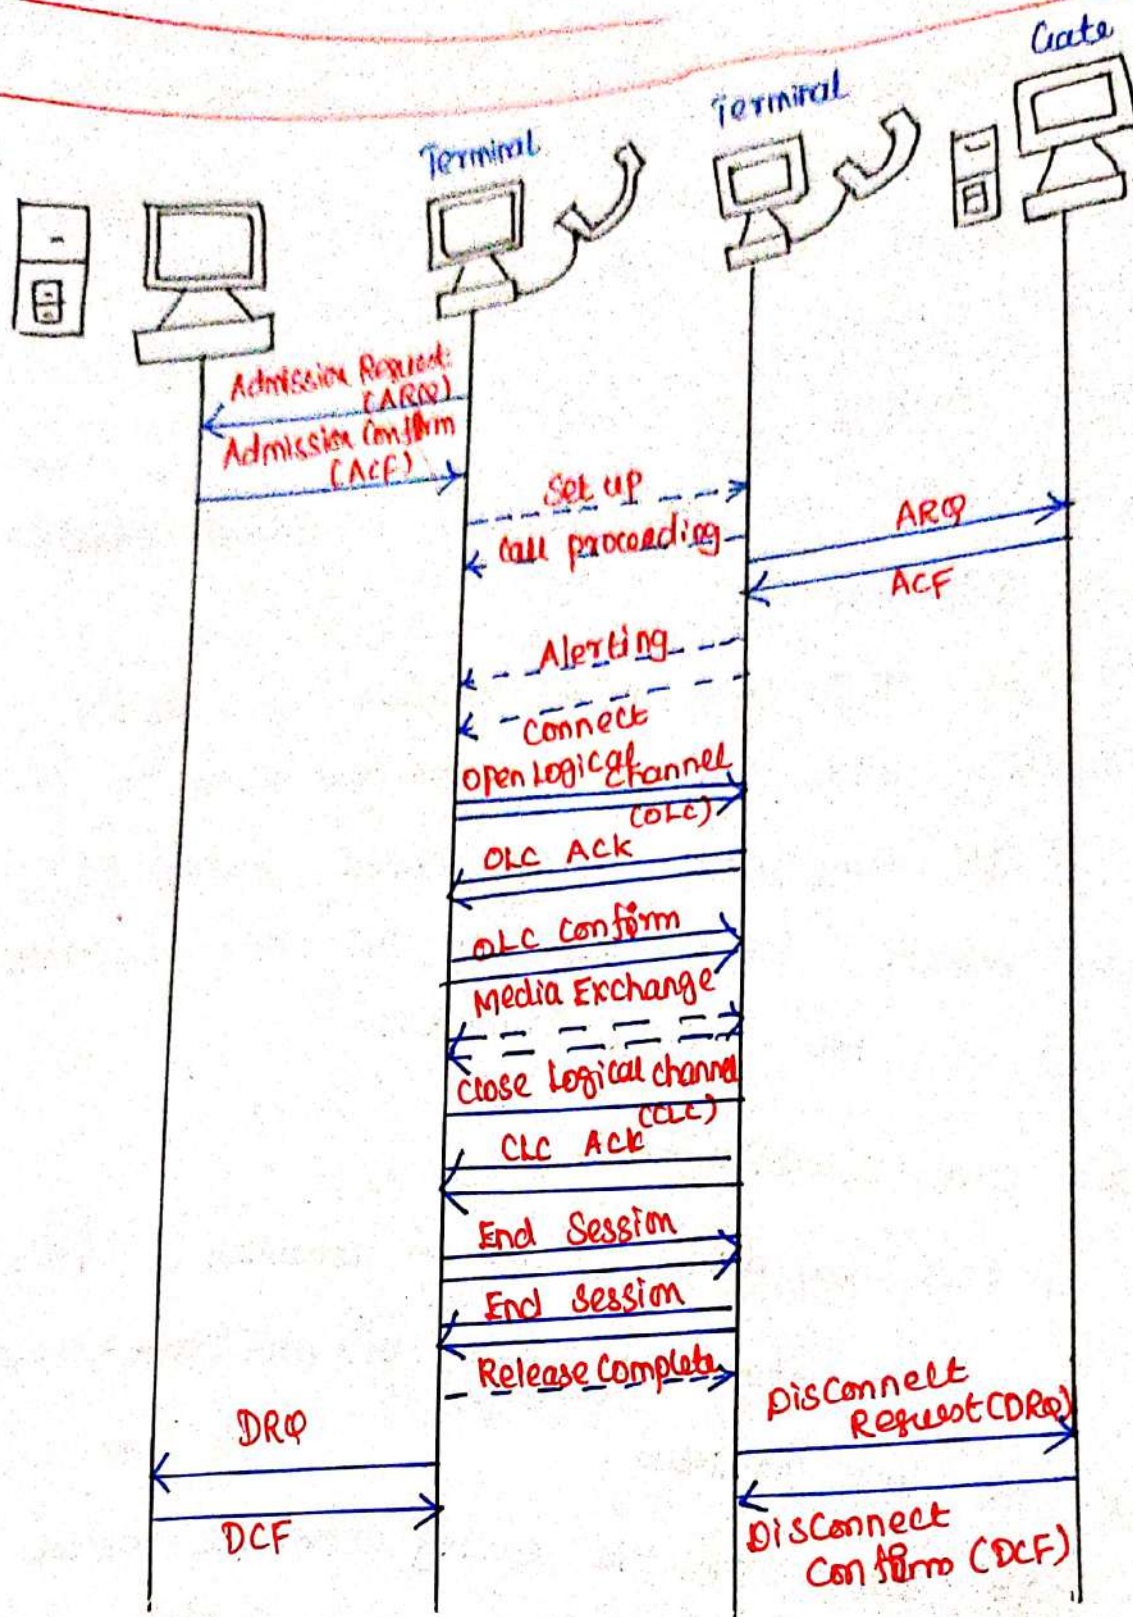 Gate
Terminal
Terminal
Admission Request
(ARQ)
Admission Confirm
(ACF)
Set up
Call proceeding
ARQ
ACF
Alerting
Connect
Open Logical channel
(OLC)
OLC Ack
OLC Confirm
Media Exchange
Close Logical channel
(CLC)
CLC Ack
End Session
End Session
Release Complete
Disconnect
Request (DRQ)
DRQ
DCF
Disconnect
Confirm (DCF)